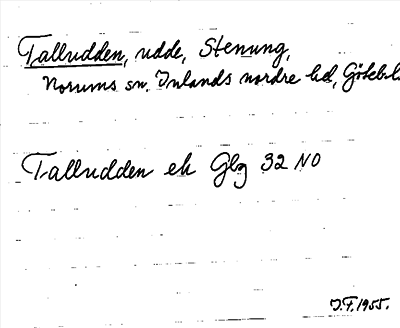 Talludden, udde, Stenung,
Norums sn. Inlands nordre hd, Göteb.l.
Talludden ek Gbg 32 NO
J.F. 1955.